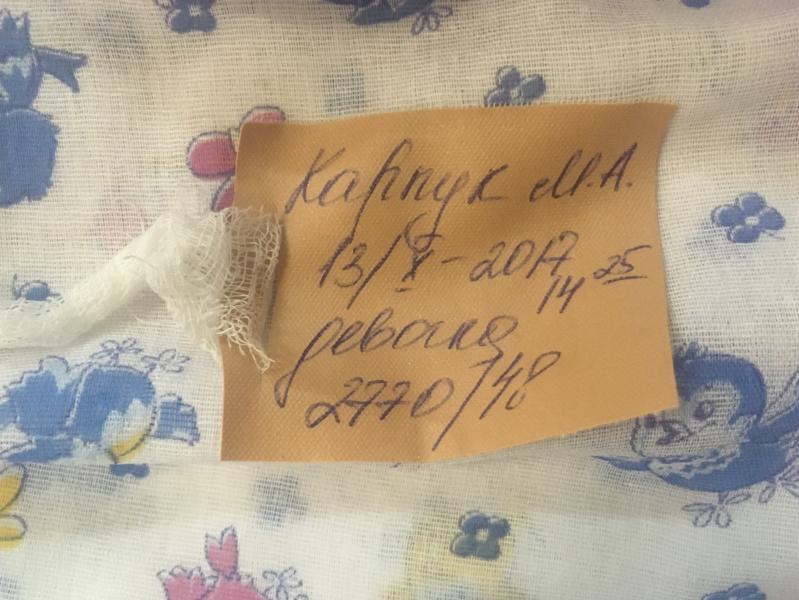 Карпук М.А.
13/X-2017 14 25
девочка
2770/48